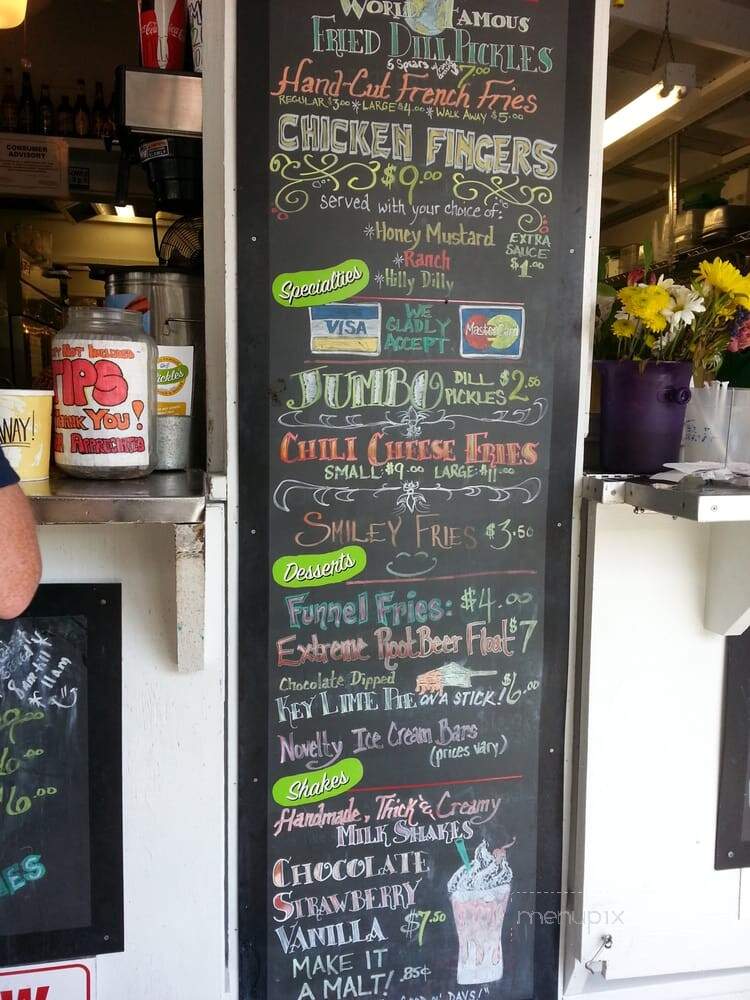 World Famous
Fried Dill Pickles
5 Spears $7.00
Hand-Cut French Fries
Regular $3.00 * Large $4.00 * Walk Away $5.00
CHICKEN FINGERS
$9.00
served with your choice of:
*Honey Mustard
*Ranch
*Hilly Dilly
EXTRA
SAUCE
$1.00
Specialties
VISA
WE
GLADLY
ACCEPT
MasterCard
JUMBO DILL PICKLES $2.50
CHILI CHEESE FRIES
SMALL: $9.00 LARGE: $11.00
SMILEY FRIES $3.50
Desserts
Funnel Fries: $4.00
Extreme Root Beer Float $7
Chocolate Dipped
KEY LIME PIE ON A STICK! $6.00
Novelty Ice Cream Bars
(prices vary)
Shakes
Handmade, Thick & Creamy
MILK SHAKES
CHOCOLATE
STRAWBERRY
VANILLA $7.50
MAKE IT
A MALT! .85¢
DAYS!
CONSUMER
ADVISORY
Coca-Cola
TIPS
YOU!
APPRECIATED
WAY!
11am
menupix